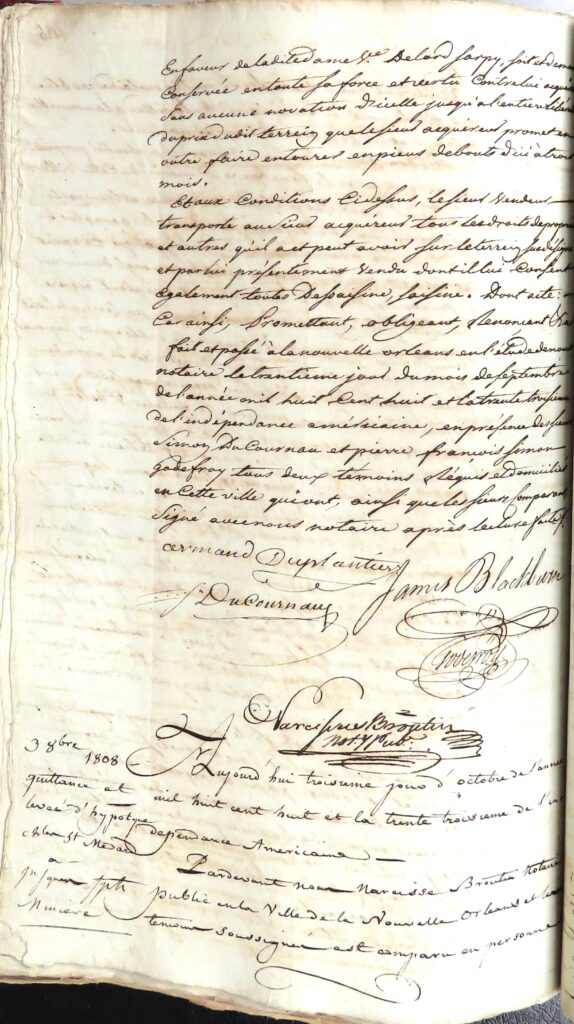 En faveur de la dite dame Ve Delord Sarpy, soit et demeure
Conservée en toute sa force et vertu Contre lui acquereur
Sans aucune novation d'icelle jusqu'a l'entiere
du prix dudit terrein que le sieur acquereur promet en
outre faire entourer en pieux debouts d'ici à trois
mois.
Et aux Conditions Cidessus, le sieur Vendeur
transporte au sieur acquereur tous les droits de propriété
et autres qu'il a et peut avoir sur le terrein susdésigné
et par lui présentement Vendu dont il lui Consent
Egalement toutes Dessaisine, saisine. Dont acte:
Car ainsi, Promettant, obligeant, Renonçant &a
fait et passé à la nouvelle orleans en l'étude de nous
notaire le trantieme jour du mois de septembre
de l'année mil huit Cent huit et la trante troisieme
de l'indépendance américaine, en présence des sieurs
Simon DuCournau et pierre françois simon
godefroy tous deux temoins Requis et domiciliés
en Cette ville qui ont, ainsi que les sieurs Comparans
Signé avec nous notaire après lecture faite.
armand Duplantier
James Blackburn
S DuCournau
Godefroy
Narcissus Broutin
Not. Pub.
3 8bre
1808
quittance et
levée d'hypotque
chler St Medard
a
jacques Jph
Miniére
Aujourd'hui troisieme jour d'octobre de l'année
mil huit cent huit et la trente troisieme de l'in-
dependance Americaine —
Pardevant nous Narcisse Broutin Notaire
public en la Ville de la Nouvelle Orleans et les
temoins soussignés est comparu en personne